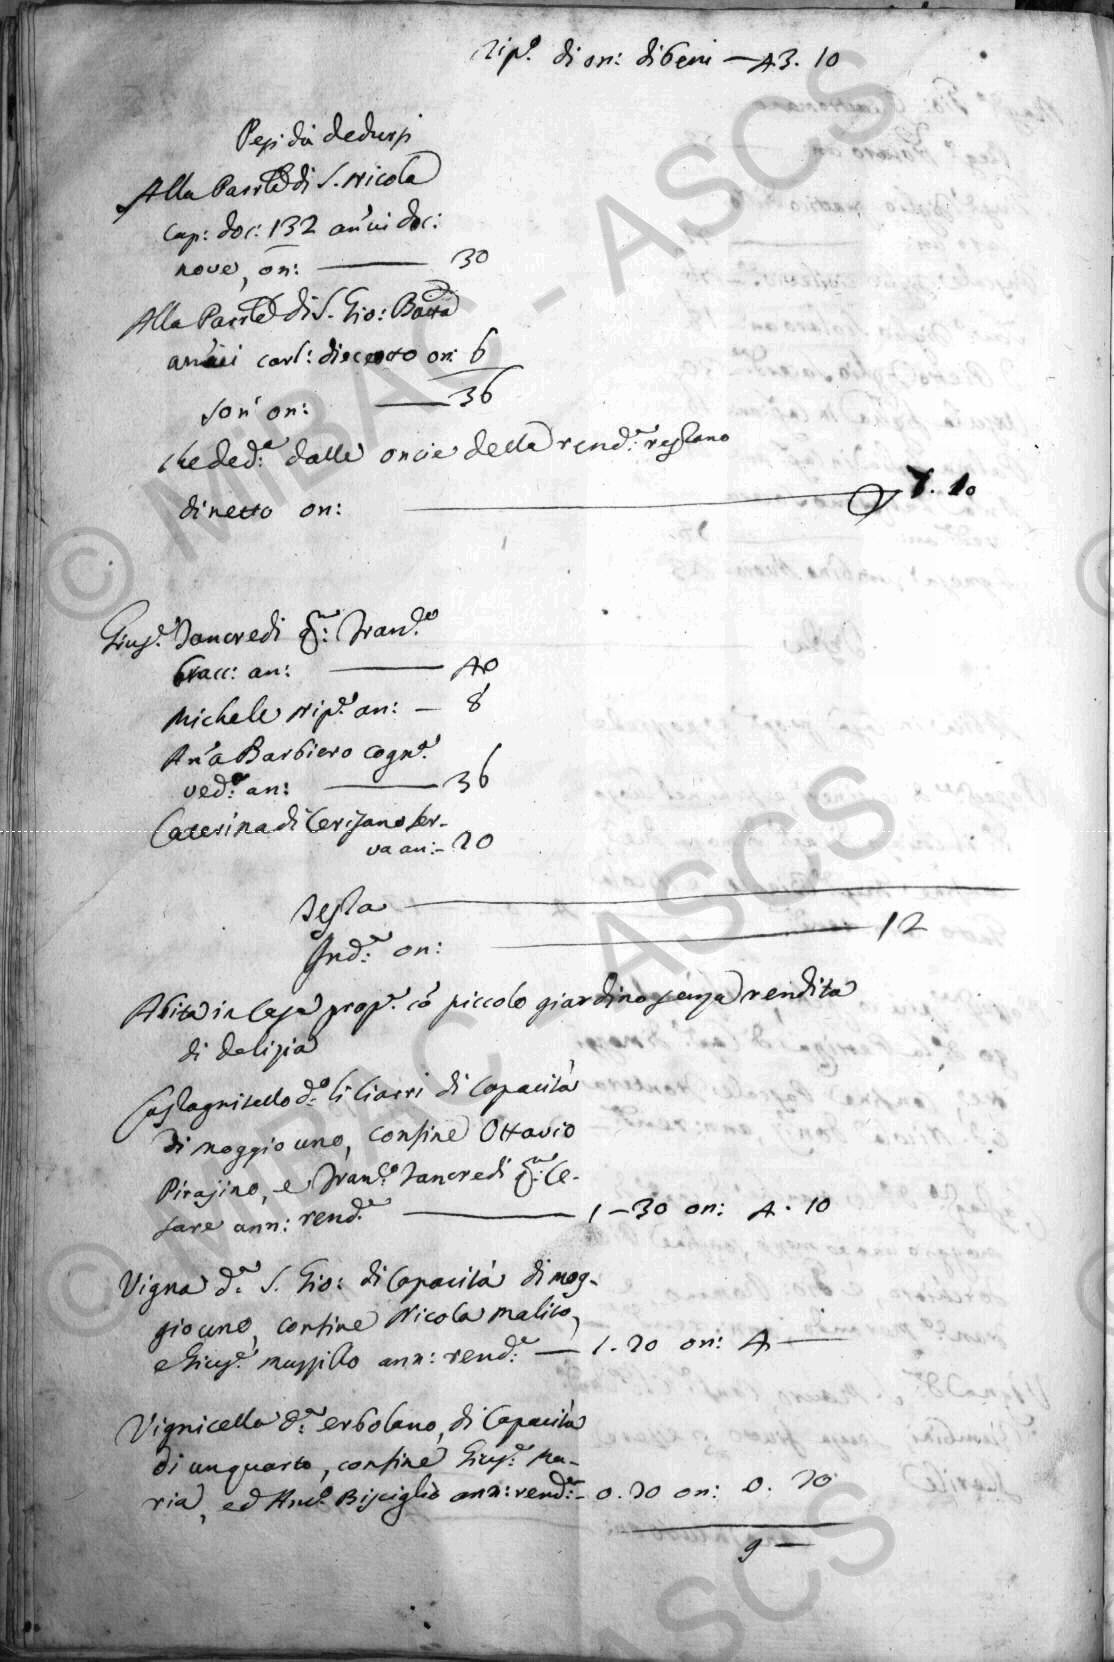 Rip.º di on: di beni — 43. 10
Pesi da dedursi
Alla Parr.le di S. Nicola
cap: doc: 132 an̄ui doc:
nove, on: — 30
Alla Parr.le di S. Gio: Batta
an̄ui carl: diecotto on: 6
Son' on: — 36
che ded.e dalle oncie della rend.a restano
di netto on: — 7. 10
Gius.e Tancredi q.m: Fran.co
bracc: an: — 40
Michele nip.e an: — 8
An̄a Barbiero cogn.a
ved.a an: — 36
Caterina di Cerisano ser-
va an: - 20
Testa —
Ind.a on: — 12
Abita in Casa prop.a có piccolo giardino senza rendita
di delizia
Castagnitello d.o li Ciarri di Capacità
di moggio uno, confine Ottavio
Pirajino, e Fran.co Tancredi q.m: Ce-
sare ann: rend.a — 1 - 30 on: 4. 10
Vigna d.a S. Gio: di Capacità di mog-
gio uno, confine Nicola Malito,
e Gius.e Muzzillo ann: rend.a — 1. 20 on: 4 —
Vignicella d.a erbolano, di Capacità
di un quarto, confine Gius.e Ma-
ria, ed Ant.o Bisciglio ann: rend.a - 0. 20 on: 0. 20
9 —
© MiBAC - ASCS
© MiBAC - ASCS